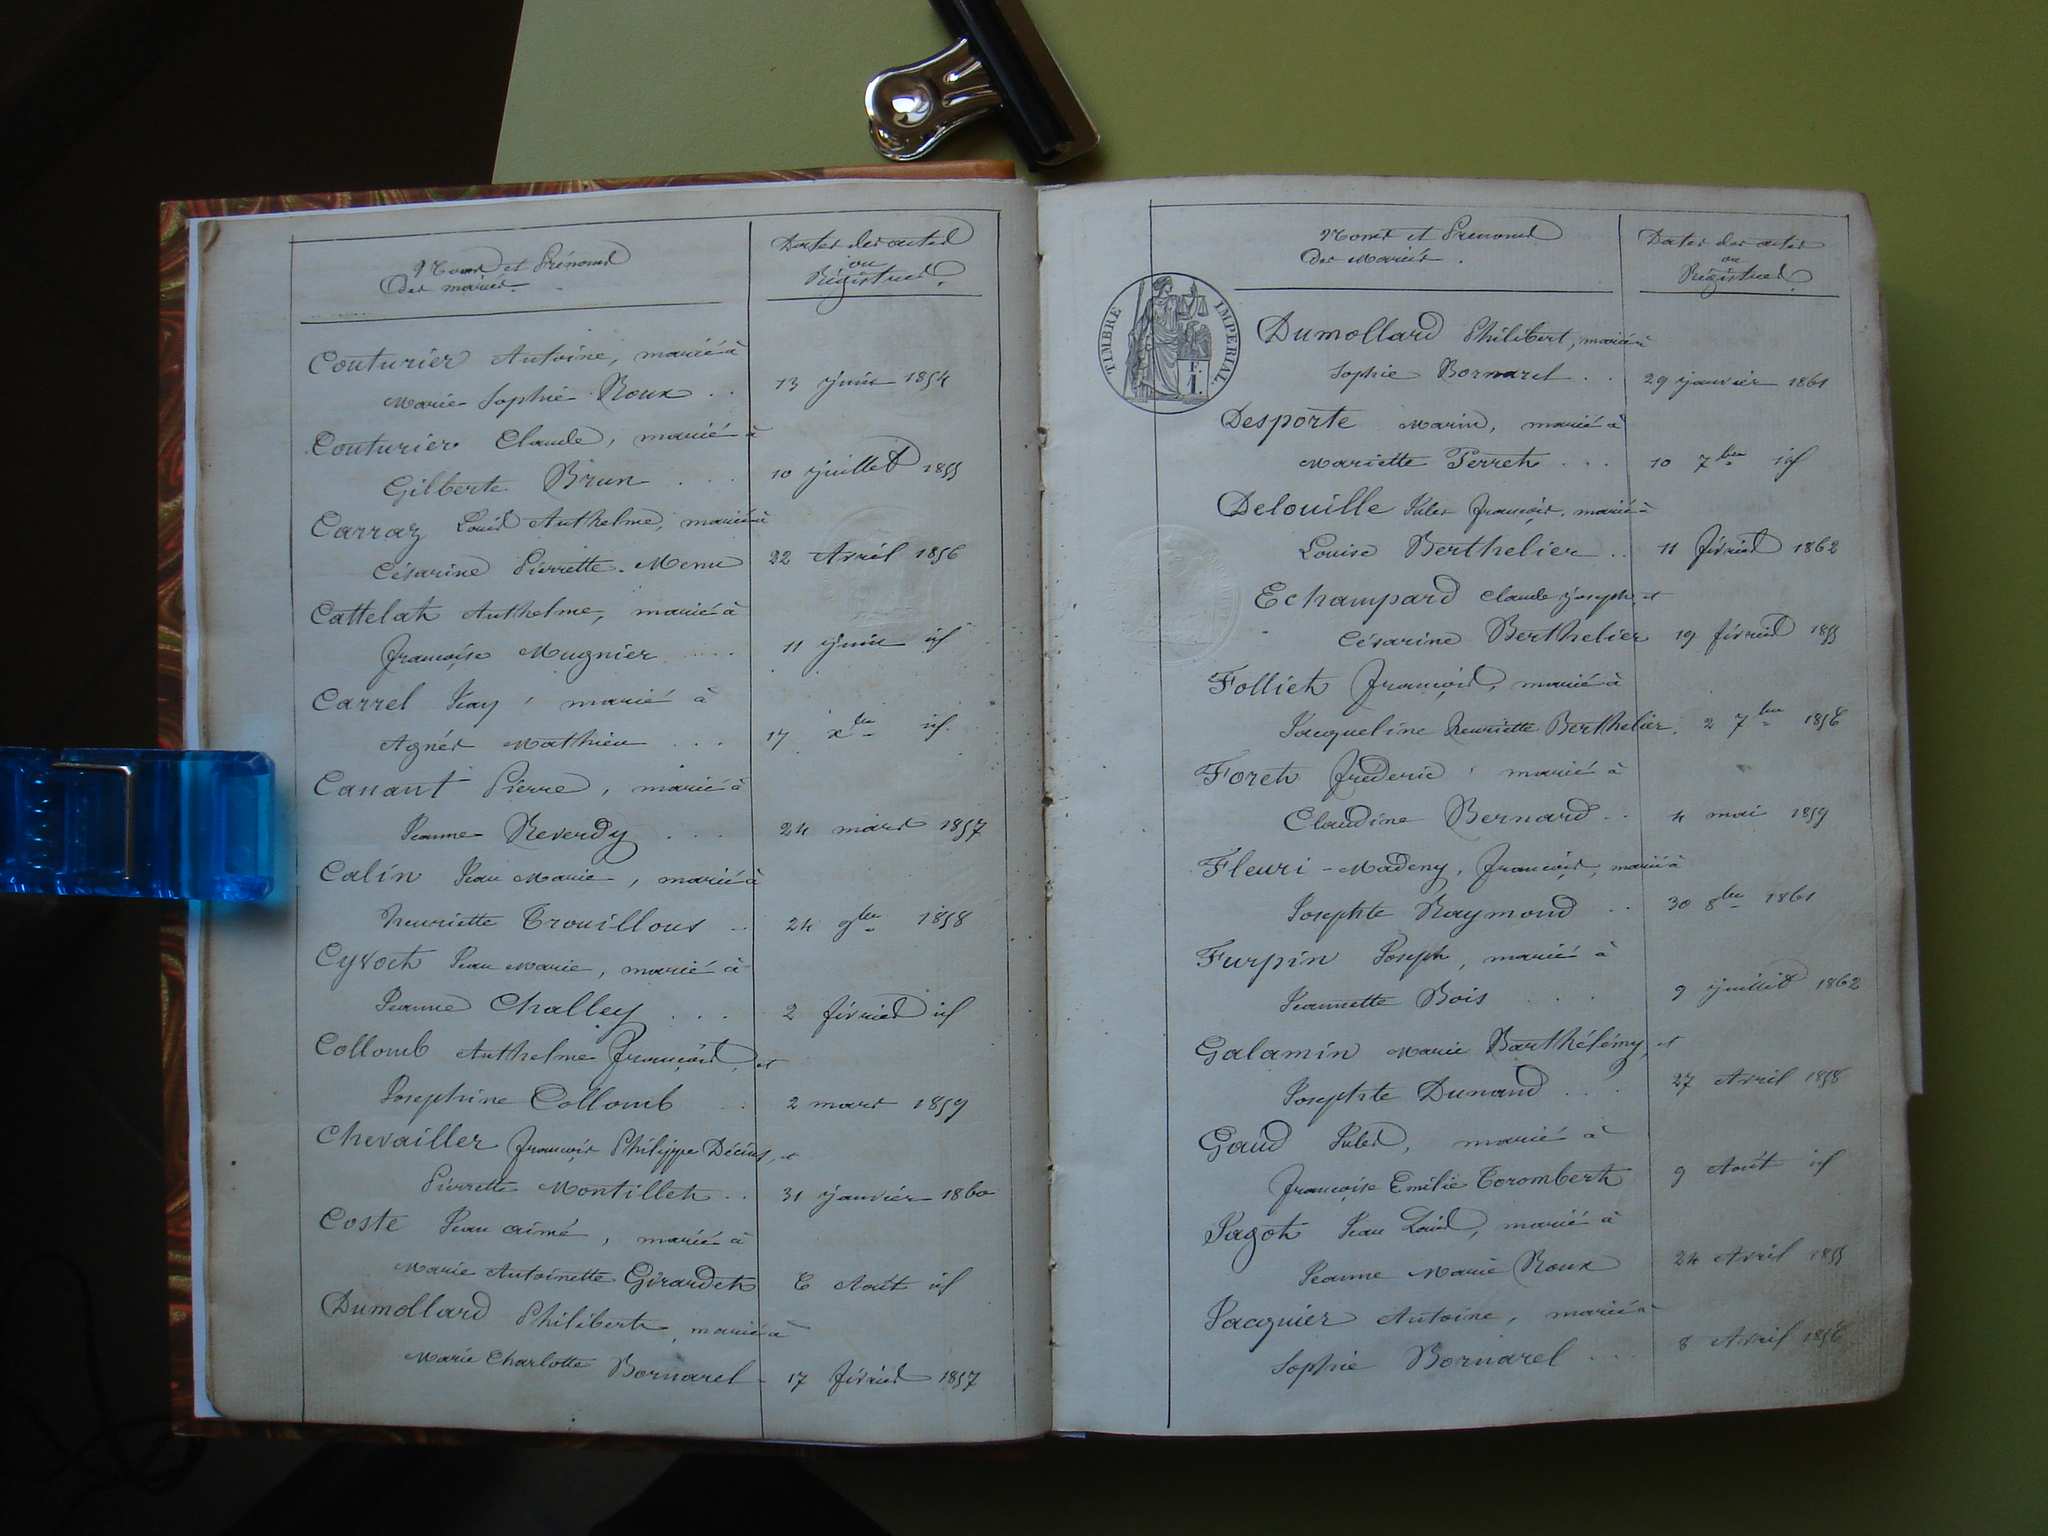 Noms et Prénoms
des mariés.
Dates des actes
ou
Régistres.
Couturier Antoine, marié à
Marie Sophie Roux . . 13 juin 1854
Couturier Claude, marié à
Gilberte Brun . . . 10 juillet 1855
Carraz Louis Anthelme, marié à
Césarine Pierrette Menu 22 Avril 1856
Cattelat Anthelme, marié à
françoise Mugnier . . . 11 juin id
Carrel Jean, marié à
Agnès Mathieu . . . 17 xbre id
Canant Pierre, marié à
Jeanne Reverdy . . . 24 mars 1857
Calin Jean Marie, marié à
henriette Trouilloux . . 24 9bre 1858
Cyvoct Jean Marie, marié à
Jeanne Challey . . . 2 février id
Collomb Anthelme françois, et
Josephine Collomb . . 2 mars 1859
Chevailler françois Philippe Décius, et
Pierrette Montillet . . 31 janvier 1860
Coste Jean aimé, marié à
Marie Antoinette Girardet 6 Août id
Dumollard Philibert, marié à
Marie Charlotte Bornarel - 17 février 1857
Noms et Prénoms
des Mariés.
Dates des actes
ou
Régistres.
TIMBRE IMPERIAL.
1 F.
Dumollard Philibert, marié à
Sophie Bornarel . . 29 janvier 1861
Desporte Marin, marié à
Mariette Perret . . . 10 7bre id
Delouille Jules françois, marié à
Louise Berthelier . . 11 février 1862
Echampard Claude joseph, et
Césarine Berthelier 19 février 1855
Folliet françois, marié à
Jacqueline henriette Berthelier. 2 7bre 1856
Foret fréderic, marié à
Claudine Bernard . . 4 mai 1859
Fleuri - Madeny, françois, marié à
Josephte Raymond . . 30 8bre 1861
Furpin Joseph, marié à
Jeannette Bois . . . 9 juillet 1862
Galamin Marie Barthélémy, et
Josephte Dunand . . . 27 Avril 1858
Gaud Jules, marié à
françoise Emilie Torombert 9 Août id
Jagot Jean Louis, marié à
Jeanne Marie Roux 24 Avril 1855
Jacquier Antoine, marié à
Sophie Bornarel . . . 8 Avril 1856